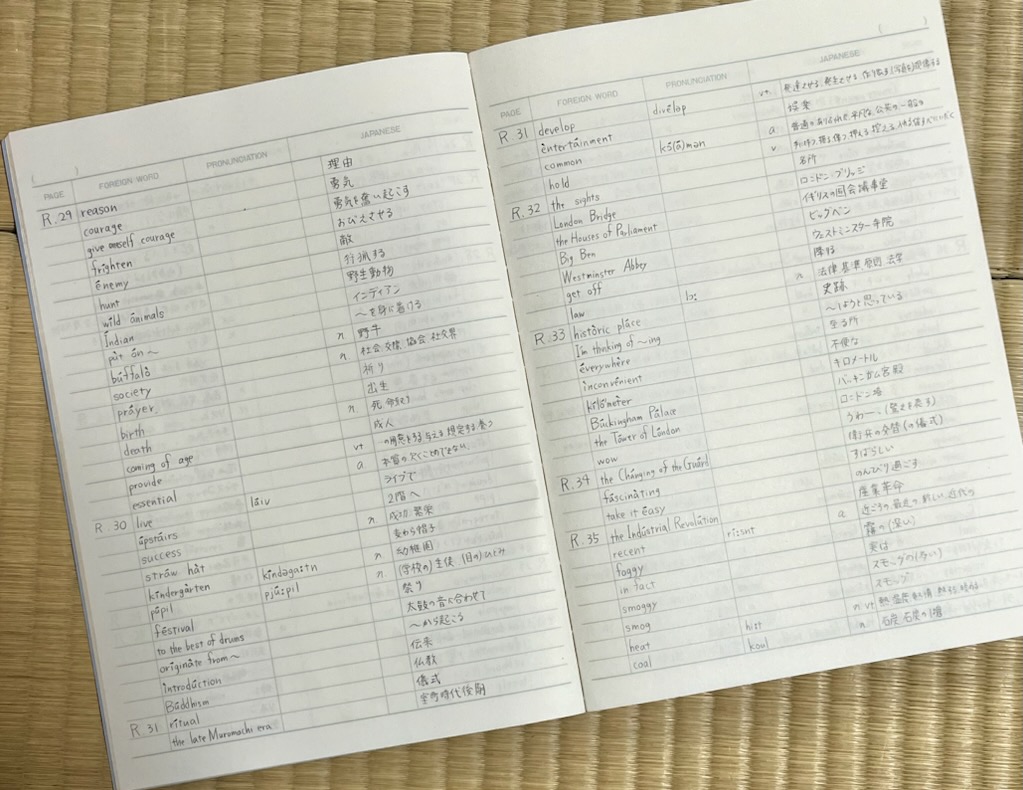 ( )
PAGE FOREIGN WORD PRONUNCIATION JAPANESE
R.29 reason 理由
courage 勇気
give oneself courage 勇気を奮い起こす
frighten おびえさせる
énemy 敵
hunt 狩猟する
wild ánimals 野生動物
Índian インディアン
pùt ón ~ ~を身に着ける
búffalò n 野牛
society n 社会 交際 協会 社交界
práyer 祈り
birth 出生
death n. 死
coming of age 成人
provide vt の用意をする 与える 規定する 養う
essential a 本質の 欠くことのできない
R.30 live láiv ライブで
ùpstáirs 2階へ
success n. 成功 繁栄
stráw hàt 麦わら帽子
kíndergàrten kíndəgɑ:tn n 幼稚園
púpil pjú:pil n (学校の)生徒 (目の)ひとみ
féstival 祭り
to the beat of drums 太鼓の音に合わせて
oríginàte from~ ~から起こる
introdúction 伝来
Búddhism 仏教
R.31 rítual 儀式
the late Muromachi era 室町時代後期
( )
PAGE FOREIGN WORD PRONUNCIATION JAPANESE
R.31 develop divéləp vt. 発達させる,発展させる,
entertáinment 娯楽
common kɔ́(ɑ́)mən a 普通の ありふれた,平凡な,公共の 一般の
hold v
R.32 the sights 名所
London Bridge ロンドン・ブリッジ
the Houses of Parliament イギリスの国会議事堂
Big Ben ビッグベン
Westminster Abbey ウェストミンスター寺院
get off 降りる
law lɔ: n 法律 基準 原則 法学
R.33 histŏric place 史跡
I'm thinking of ~ing ~しようと思っている
éverywhère 至る所
ìnconvénient 不便な
kilómeter キロメートル
Búckingham Pálace バッキンガム宮殿
the Tówer of Lóndon ロンドン塔
wow うわー、(驚きを表す)
R.34 the Chánging of the Guárd 衛兵の交替(の儀式)
fáscinàting すばらしい
take it éasy のんびり過ごす
R.35 the Indústrial Revolútion 産業革命
recent rí:snt a 近ごろの 最近の 新しい 近代の
foggy 霧の(深い)
in fact 実は
smoggy スモッグの(多い)
smog スモッグ
heat hi:t n vt 熱 温度 熱情 熱する
coal koul n 石炭